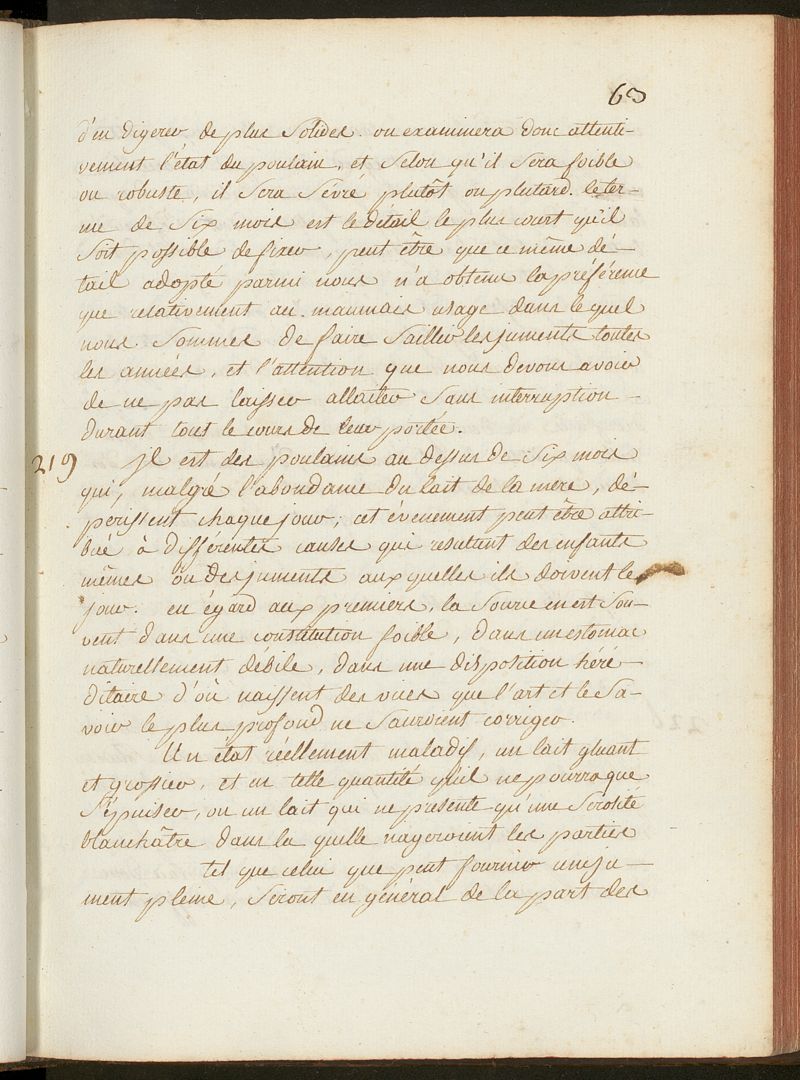 63
d'en digerer de plus Solides. on examinera donc attenti-
vement l'état du poulain, et Selon qu'il Sera foible
ou robuste, il Sera Sévré plutôt ou plutard. le ter-
me de Six mois est le détail le plus court qu'il
Soit possible de fixer, peut être que ce même dé-
tail adopté parmi nous n'a obtenu la préférence
que relativement au mauvais usage dans le quel
nous Sommes de faire Saillir les juments toutes
les années, et l'attention que nous devons avoir
de ne pas laisser allaiter Sans interruption
durant tout le cours de leur portée.
219 Jl est des poulains au dessus de Six mois
qui, malgré l'abondance du lait de la mere, dé-
périssent chaque jour; cet évenement peut être attri-
bué à différentes causes qui resultent des enfants
mêmes ou des juments aux quelles ils doivent le
jour. eu égard aux premiers, la Source en est Sou-
vent dans une constitution foible, dans un estomac
naturellement débile, dans une disposition héré-
ditaire d'où naissent des vices que l'art et le Sa-
voir le plus profond ne Sauroient corriger.
Un état réellement maladif, un lait gluant
et grossier, et en telle quantité qu'il ne pourra que
S'épuiser, ou un lait qui ne presente qu'une Serosité
blanchâtre dans la quelle nageroient les parties
tel que celui que peut fournir une ju-
ment pleine, Seront en général de la part des